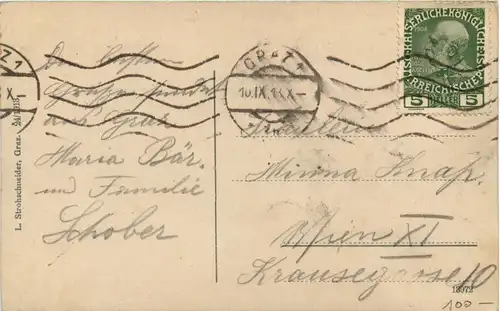 GRAZ 1
10.IX.13.X-
KAISERLICHE KÖNIGLICHE ÖSTERREICHISCHE POST
1908
5 HELLER 5
Die besten
Grüße sendet
aus Graz
Maria Bär
und Familie
Schober
L. Strohschneider, Graz.
Fräulein
Minna Knap.
Wien XI
Krausegasse 10
13972
100-